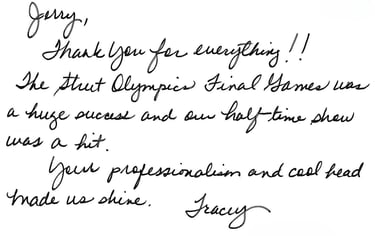 Jerry,
Thank You for everything!!
The Strut Olympics Final Games was
a huge success and our half-time show
was a hit.
Your professionalism and cool head
made us shine. Tracey